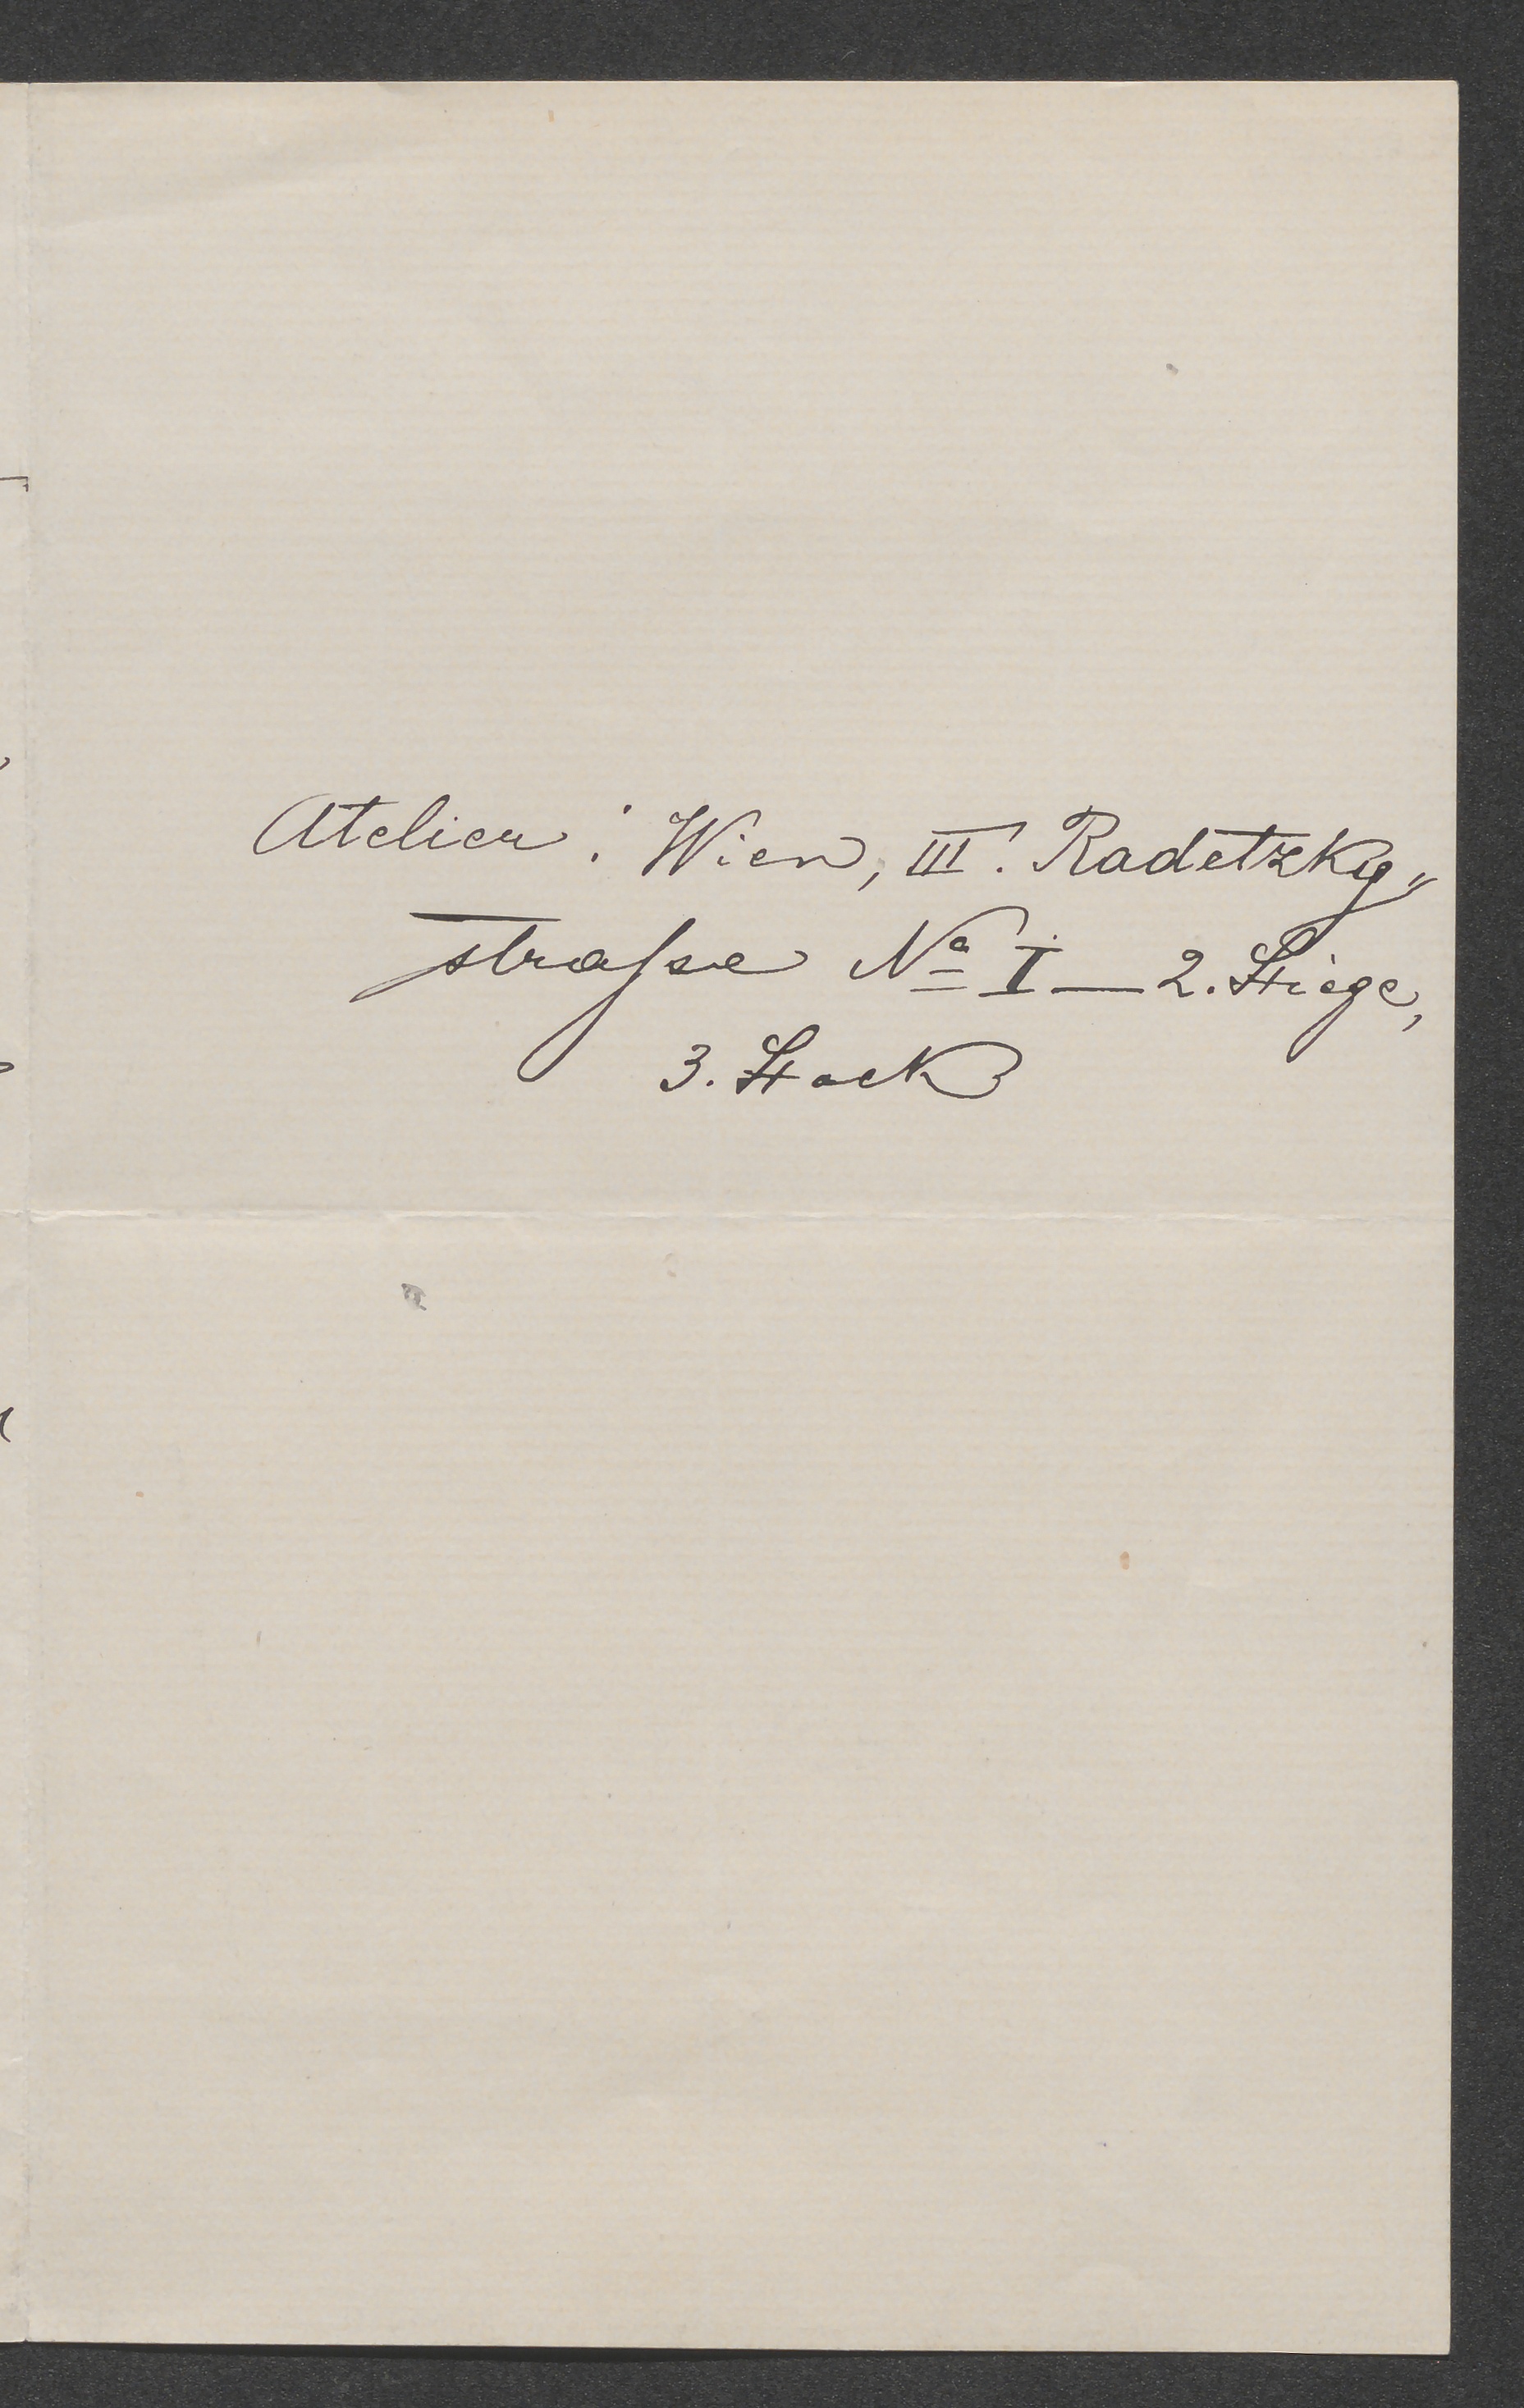 Atelier: Wien, III. Radetzky„
straſse Nº I — 2. Stiege,
3. Stock